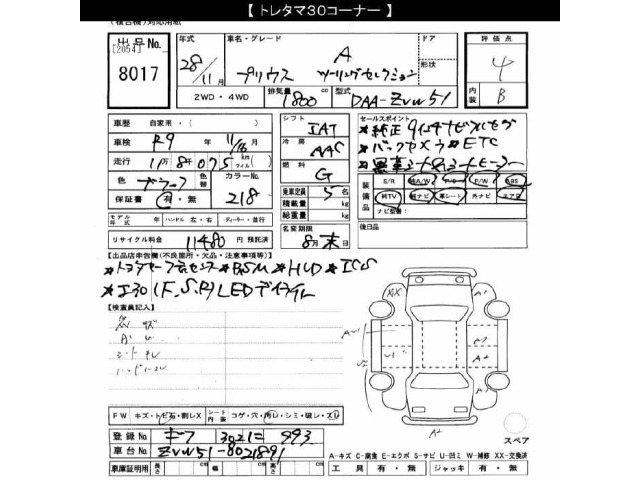 【 トレタマ30コーナー 】
(複合機)対応用紙
出号No.
[2054]
8017
年式
28年11月
車名・グレード
プリウス A ツーリングセレクション
ドア
形状
2WD・4WD
排気量 1800 cc
型式 DAA-ZVW51
評価点
4
内装
B
車歴 自家用・( )
車検 R9 年 11/16 月
走行 11万8千075 km マイル
色 ブラック 色替 カラーNo. 218
保証書 有・無
モデル年式 年 ハンドル 左・右 ・ディーラー・並行
リサイクル料金 11480 円 預託済
シフト IAT
冷房 AAC
燃料 G
乗車定員 5 名
積載量 kg
総重量 kg
名変期限 8月末日
セールスポイント
*純正9インチナビフルセグ
*バックカメラ *ETC
*黒革シート *シートヒーター
装備品
S/R 純A/W P/S P/W ABS
純TV 純ナビ 革シート 外ナビ エアB
ナビ型番:
後日品
【出品店申告欄(不良箇所・欠品・注意事項等)】
*トヨタセーフティセンス *BSM *HUD *ICS
*エアロ(F,S,R) LEDデイライト
【検査員記入】
各 キズ
A U
シート
FW キズ・トビ石・割レX
シート内装 コゲ・穴・汚レ・シミ・破レ・スレ
登録No 302 993
車台No ZVW51-8021891
車庫証明用 長さ cm 幅 cm 高さ cm
XX
A1
A2
スペア
A-キズ C-腐食 E-エクボ S-サビ U-凹ミ W-補修 XX-交換済
工具 有・無 ジャッキ 有・無